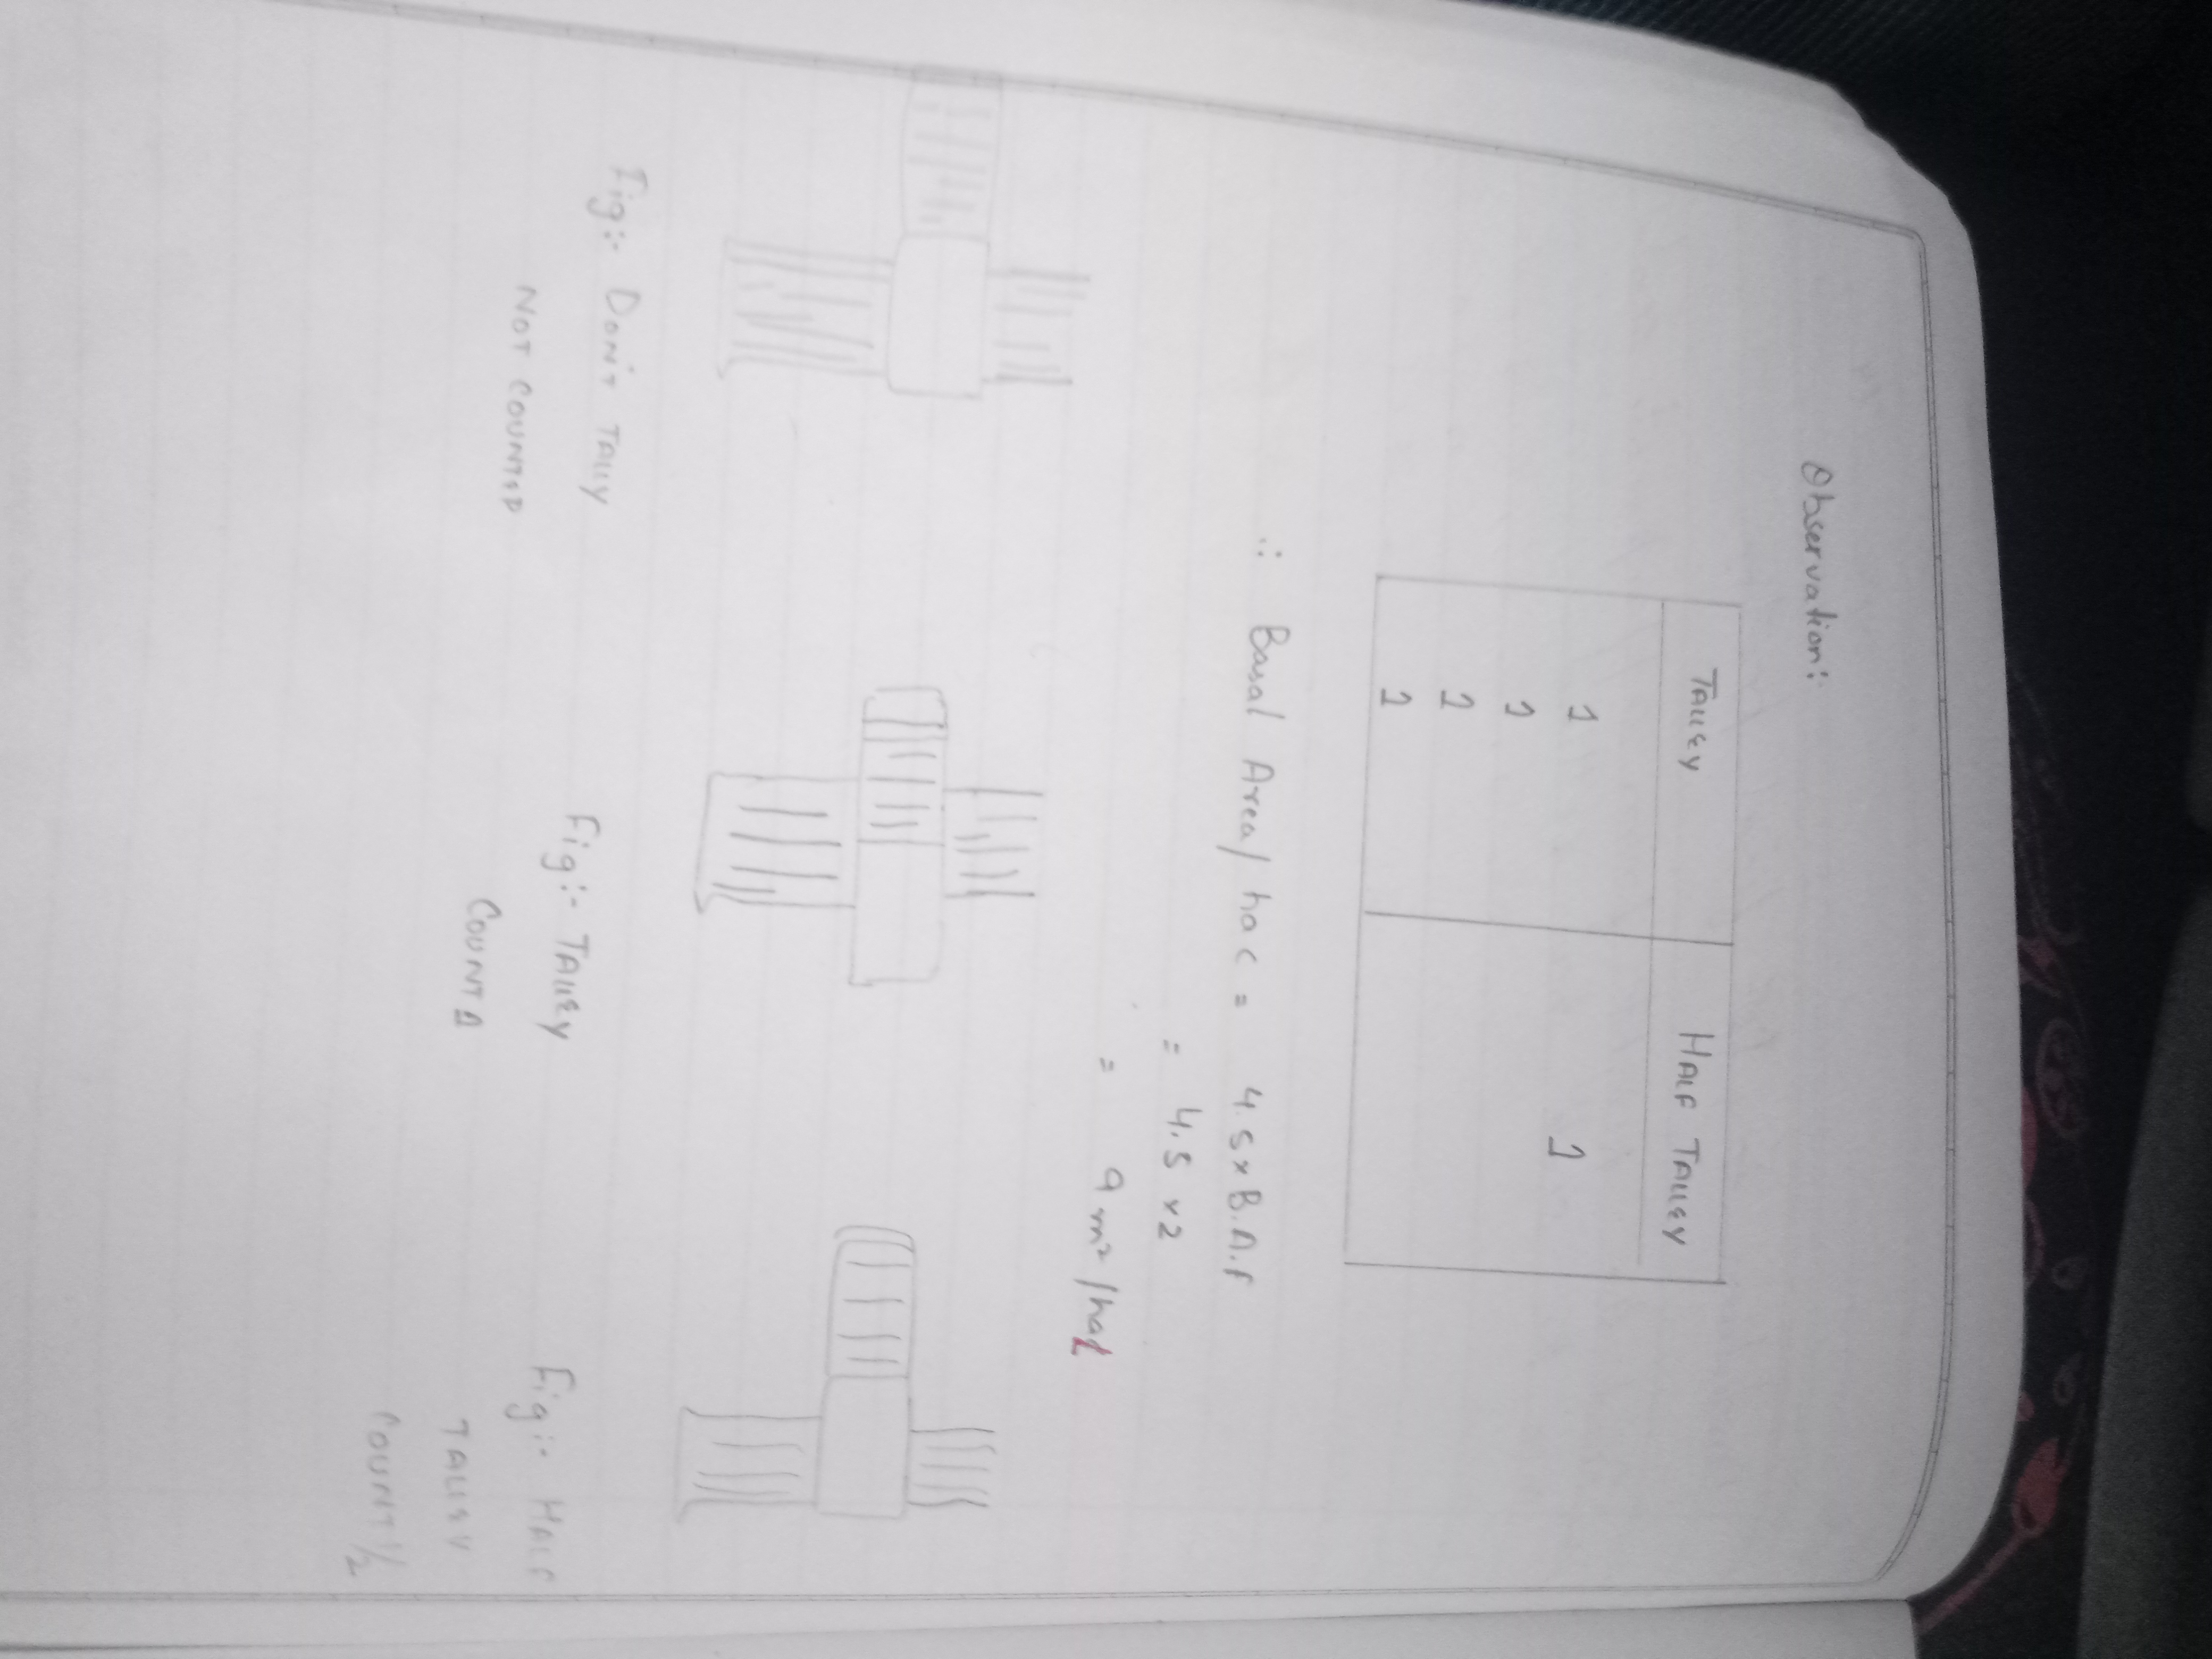 Observation:-
TALLEY HALF TALLEY
1 1
1
1
1
∴ Basal Area/hac = 4.5 x B.A.F
= 4.5 x 2
= 9 m² /had
Fig:- DON'T TALLY
NOT COUNTED
Fig:- TALLEY
COUNT 1
Fig:- HALF
TALLEY
COUNT 1/2